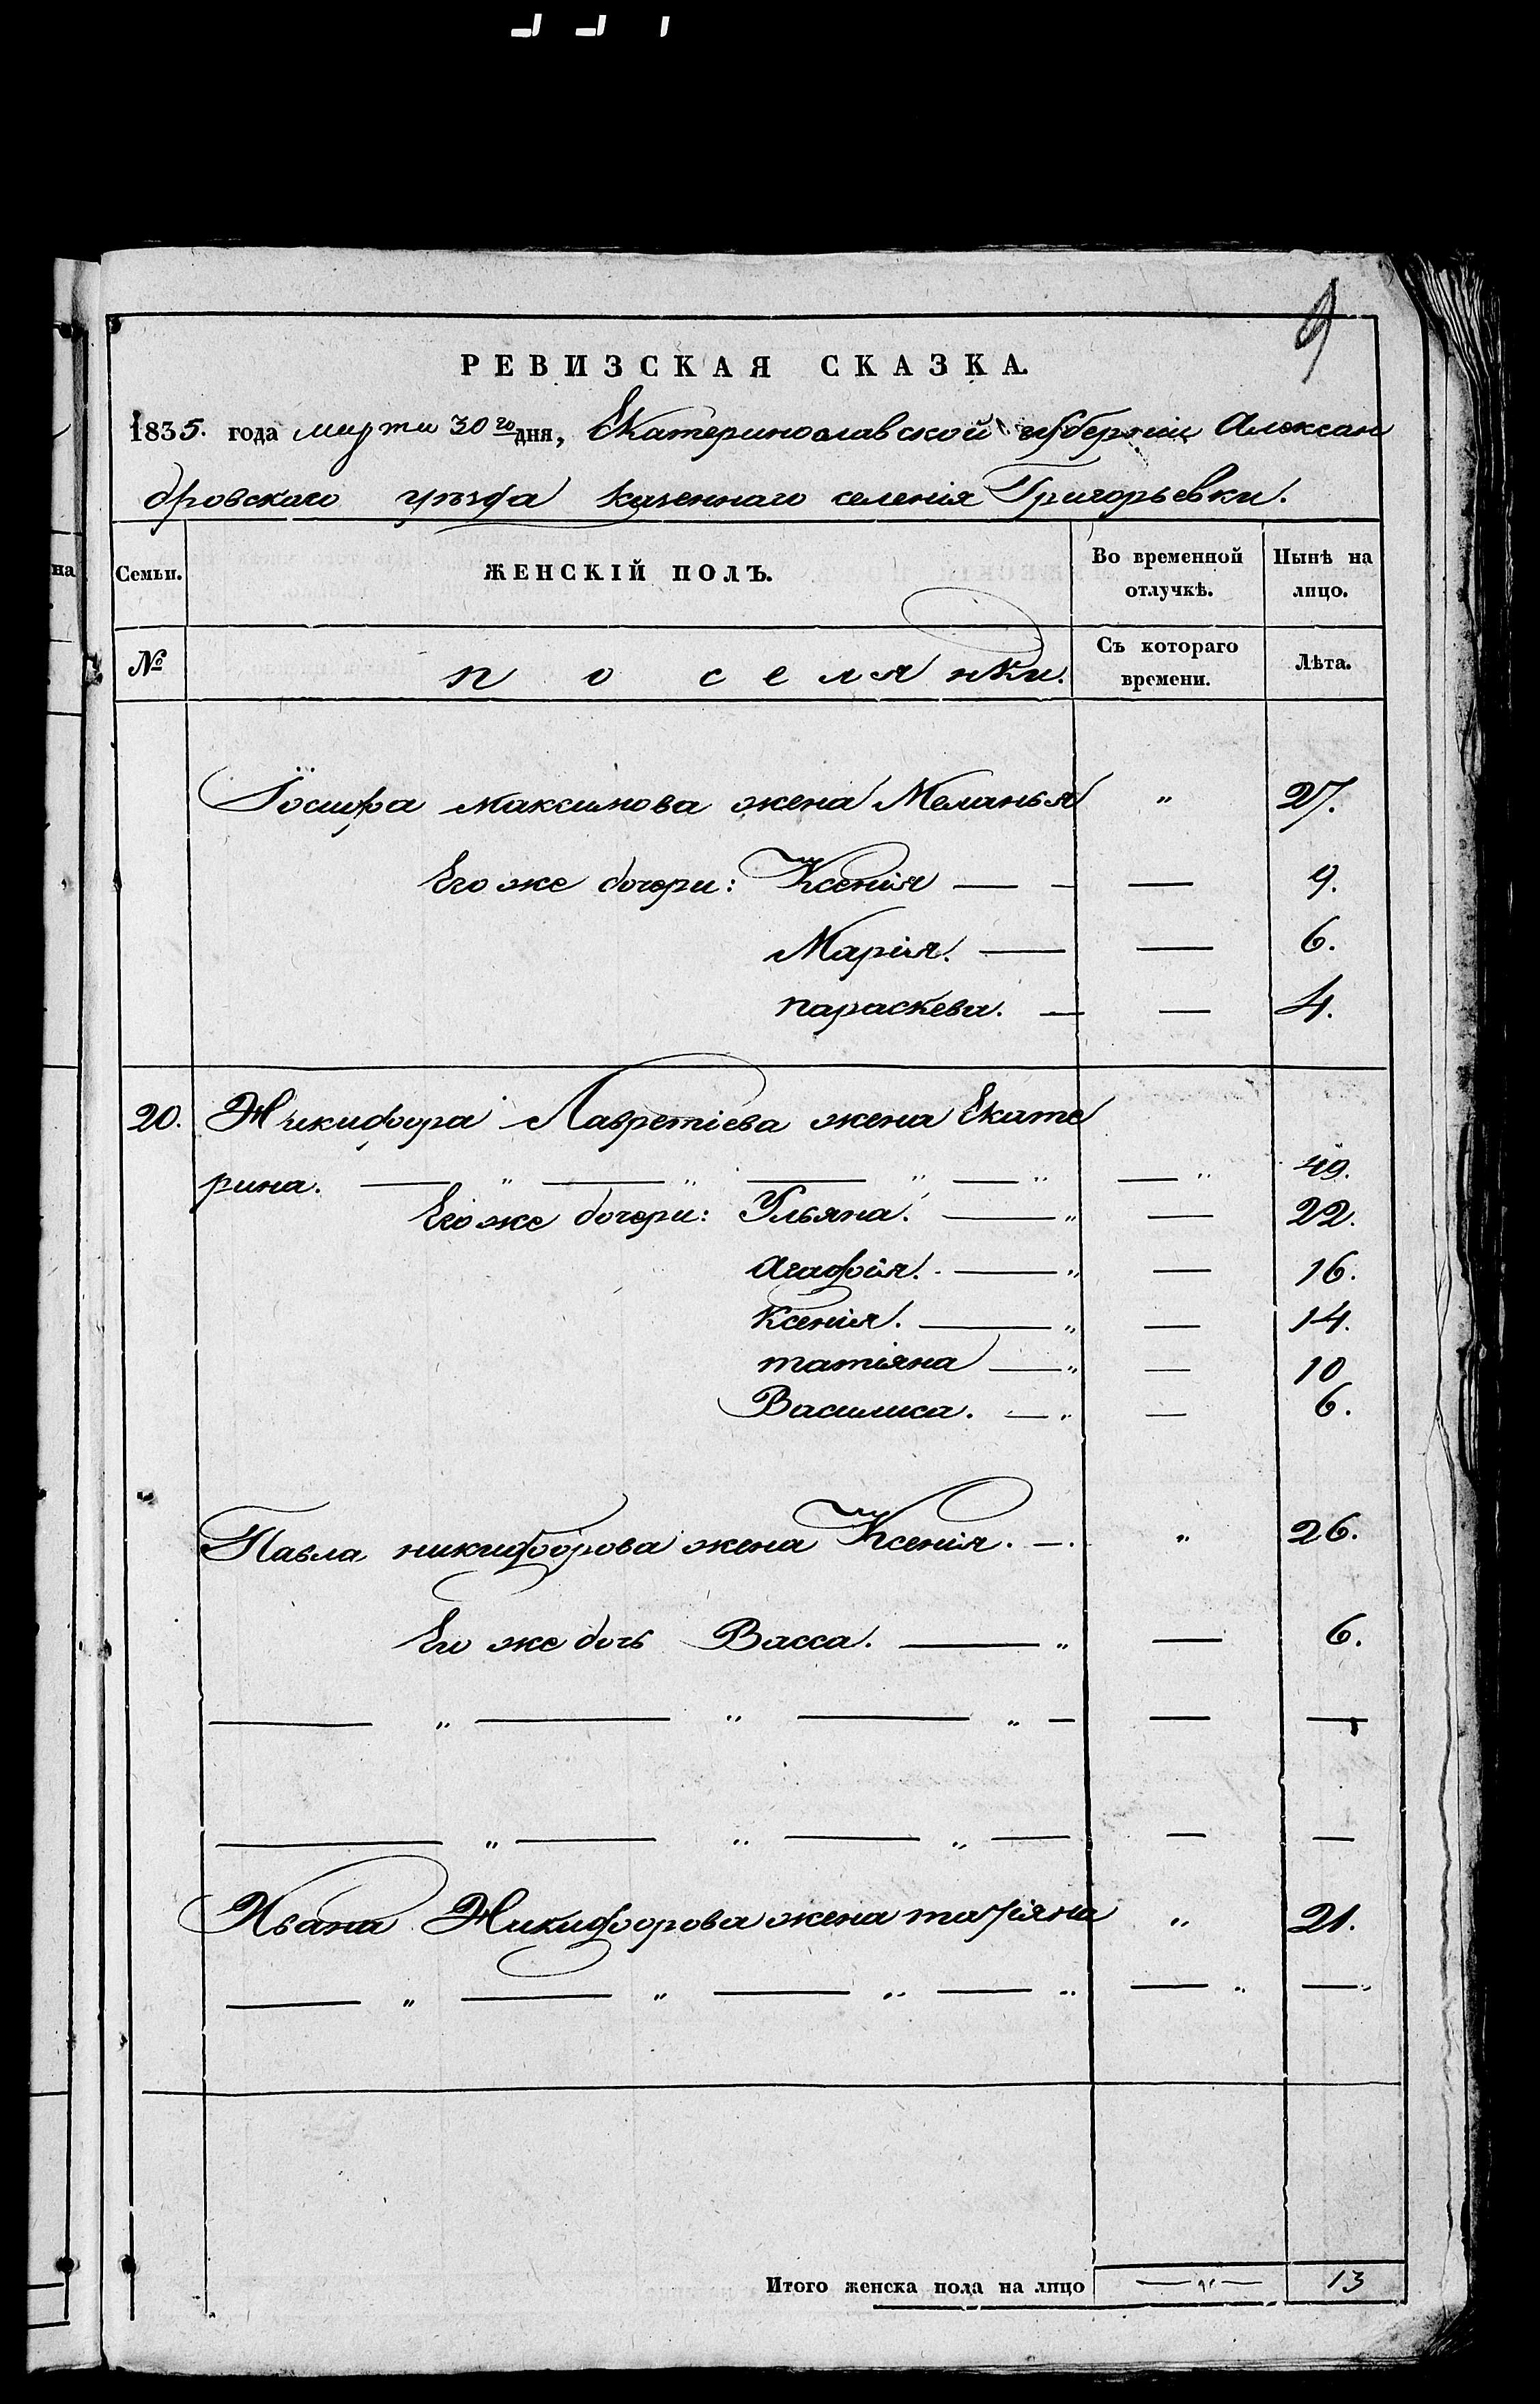 9
РЕВИЗСКАЯ СКАЗКА.
1835. года марта 30го дня, Екатеринославской губерніи Алексан
дровскаго уѣзда казеннаго селенія Григорьевки.
Семьи. ЖЕНСКІЙ ПОЛЪ. Во временной отлучкѣ. Нынѣ на лицо.
№ поселянки. Съ котораго времени. Лѣта.
Іосифа Максимова жена Меланья " 27.
Его же дочери: Ксенія — — — 9.
Марія. — — 6.
параскева. — — 4.
20. Никифора Лавретіева жена Екате
рина. — " — " — " — " — " 49.
Его же дочери: Ульяна. — " — 22.
Агафія. — " — 16.
Ксенія. — " — 14.
татіяна — " — 10
Василиса. — " — 6.
Павла никифорова жена Ксенія. — " 26.
Его же дочь Васса. — " — 6.
— " — " — " — — —
— " — " — " — — —
Ивана Никифорова жена татіяна " 21.
— " — " — " — " — " — "
Итого женска пола на лицо — " — 13